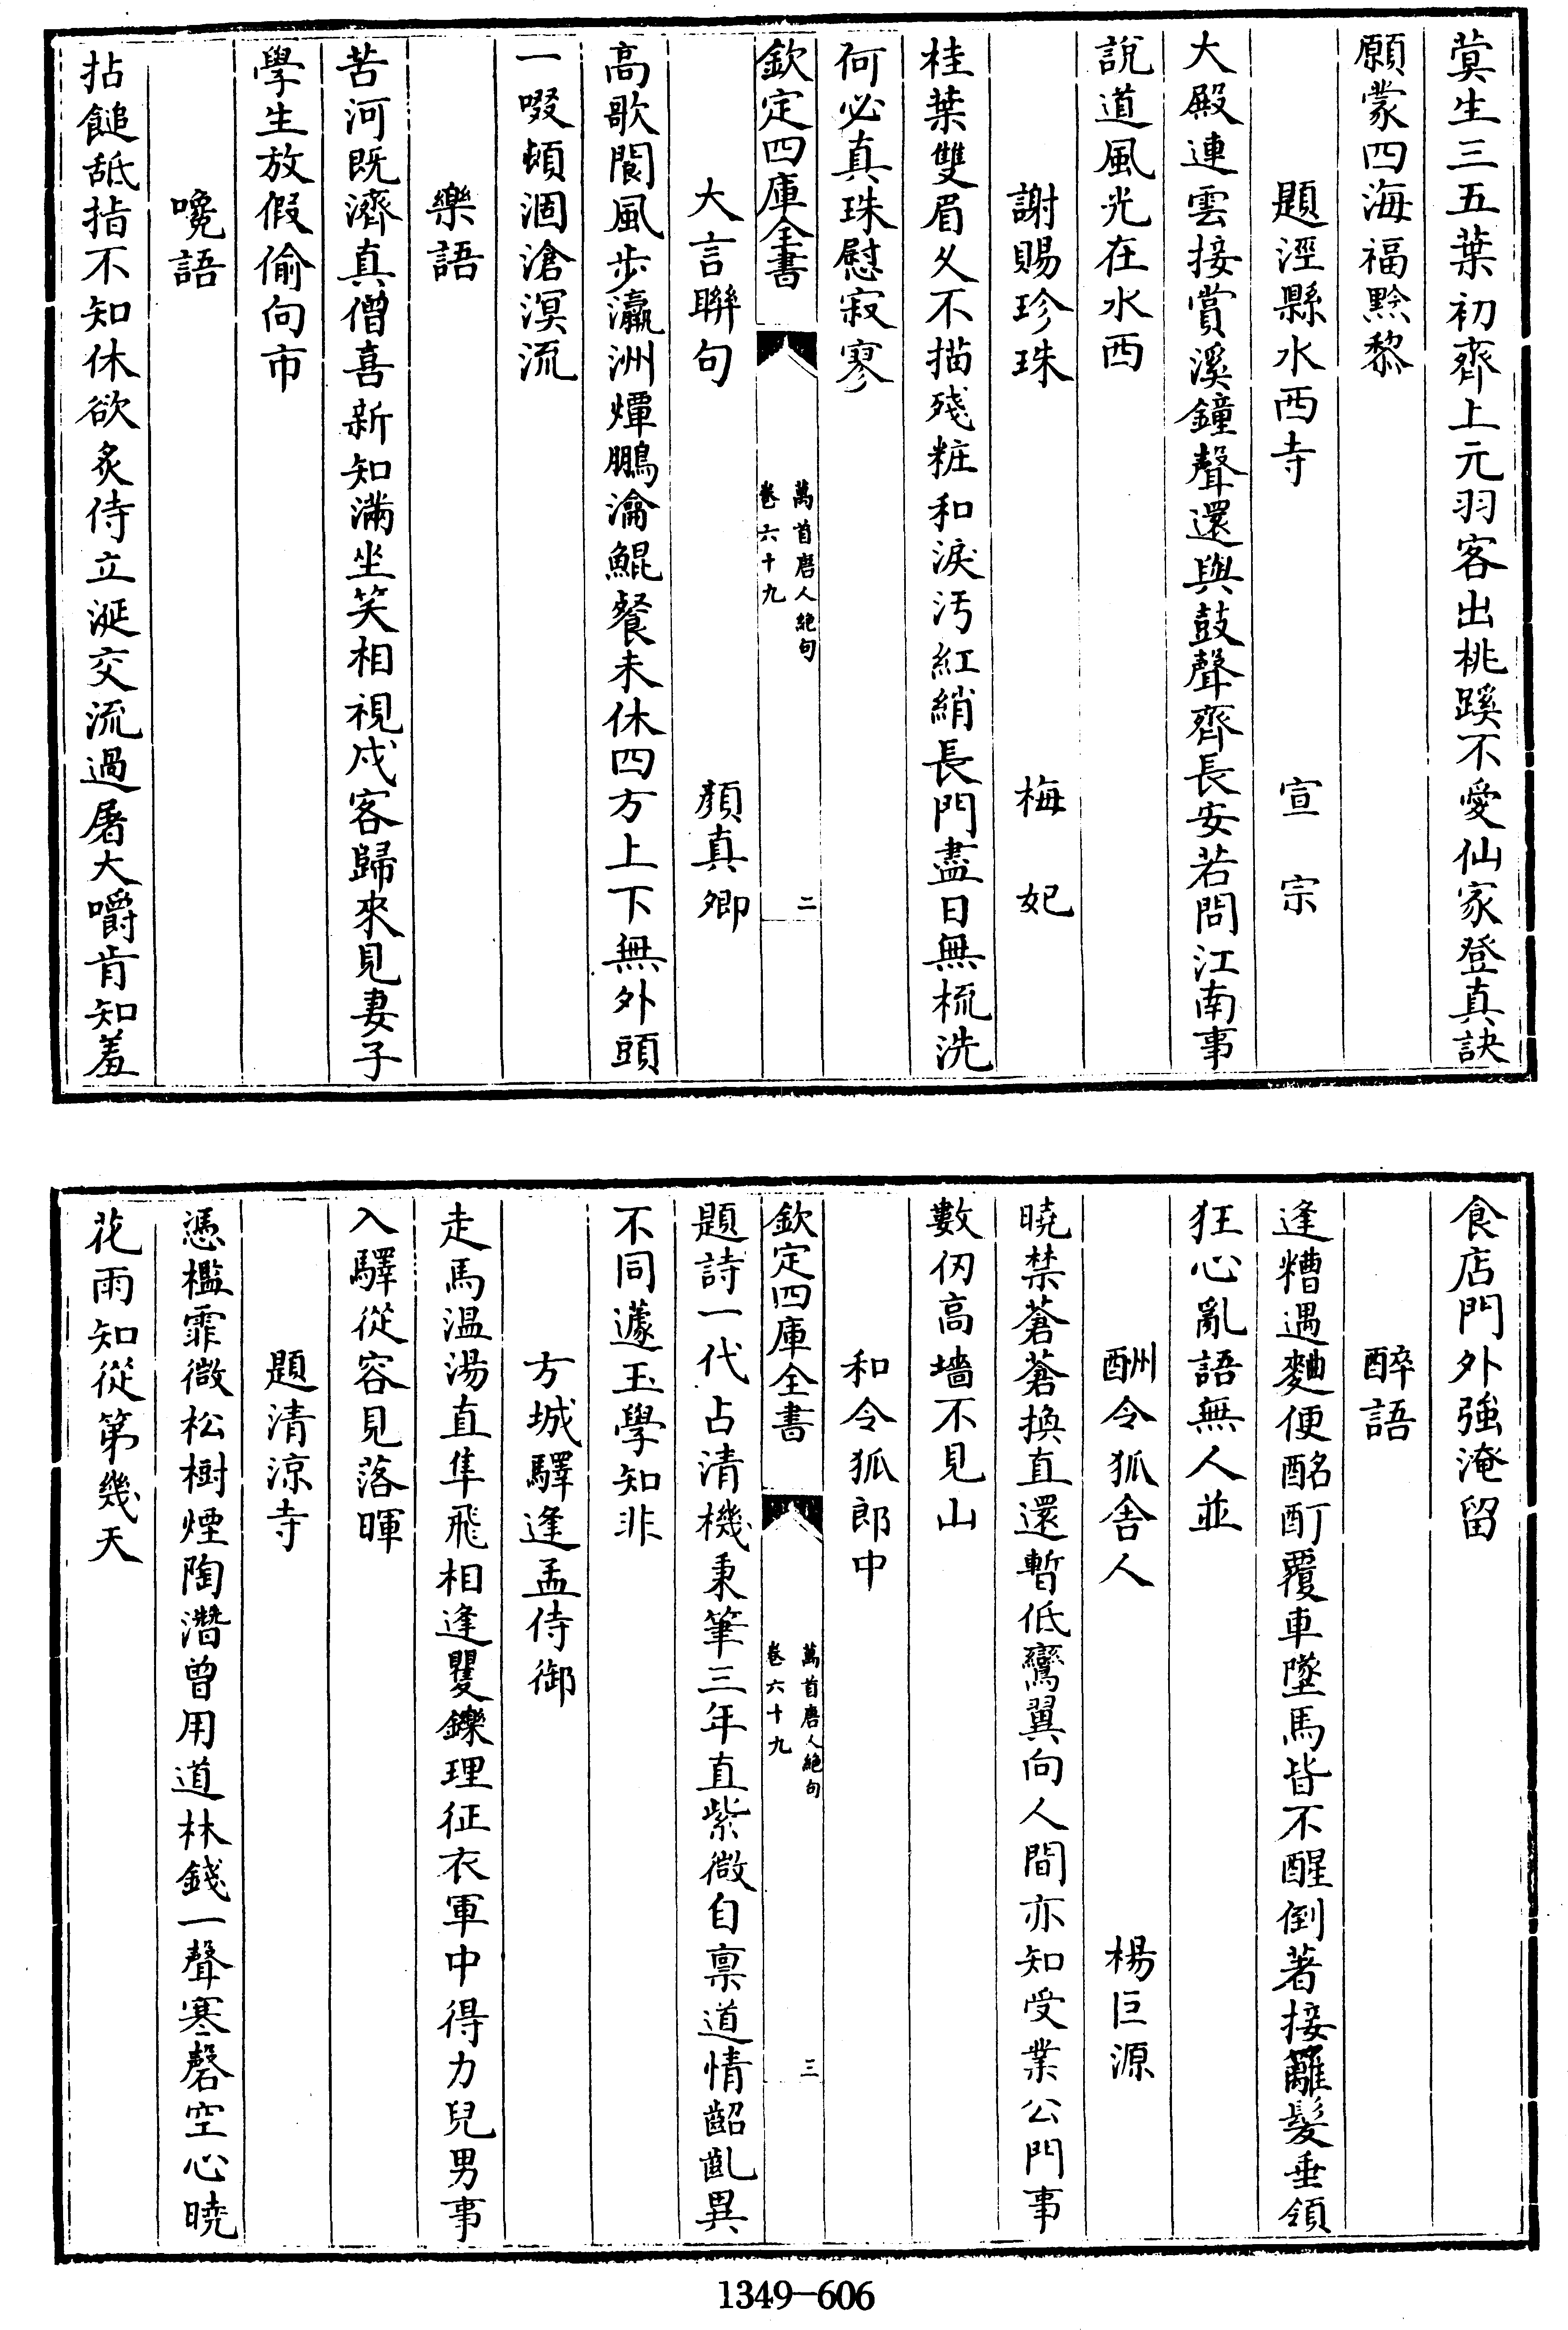 蓂生三五葉初齊上元羽客出桃蹊不愛仙家登真訣
願蒙四海福黔黎
題涇縣水西寺　宣宗
大殿連雲接賞溪鐘聲還與鼓聲齊長安若問江南事
說道風光在水西
謝賜珍珠　梅妃
桂葉雙眉久不描殘粧和淚汚紅綃長門盡日無梳洗
何必真珠慰寂寥
欽定四庫全書　萬首唐人絶句卷六十九　二
大言聯句　顏真卿
高歌閬風步瀛洲燀鵬瀹鯤餐未休四方上下無外頭
一啜頓涸滄溟流
樂語
苦河既濟真僧喜新知滿坐笑相視戍客歸來見妻子
學生放假偷向市
嚵語
拈䭔舐指不知休欲炙侍立涎交流過屠大嚼肯知羞
食店門外強淹留
醉語
逢糟遇麯便酩酊覆車墜馬皆不醒倒著接䍦髮垂領
狂心亂語無人並
酬令狐舍人　楊巨源
曉禁蒼蒼換直還暫低鸞翼向人間亦知受業公門事
數仞高墻不見山
和令狐郎中
欽定四庫全書　萬首唐人絶句卷六十九　三
題詩一代占清機秉筆三年直紫微自禀道情齠齓異
不同蘧玉學知非
方城驛逢孟侍御
走馬温湯直隼飛相逢矍鑠理征衣軍中得力兒男事
入驛從容見落暉
題清涼寺
憑檻霏微松樹煙陶潛曾用道林錢一聲寒磬空心曉
花雨知從第幾天
1349-606